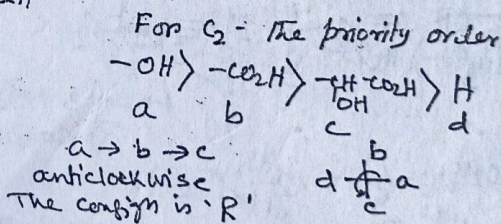 For C2- The priority order
-OH > -CO2H > -CH-CO2H > H
OH
a b c d
a → b → c
anticlockwise
The config is 'R'
b
d a
c